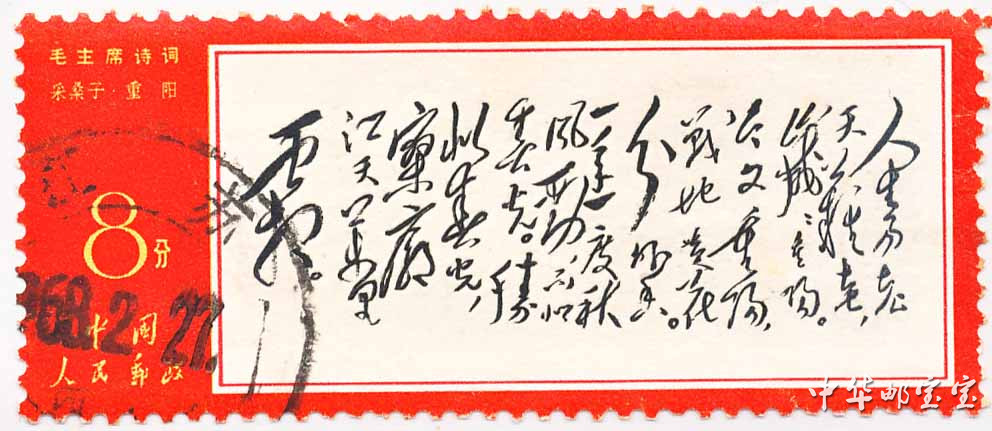 毛主席诗词
采桑子·重阳
8分
中国
人民郵政
968.2.27.
人生易老
天難老,
歲歲重陽。
今又重陽,
戰地黄花
分外香。
一年一度秋
風劲不似
春光。勝
似春光,
寥廓
江天萬里
霜。
中华邮宝宝